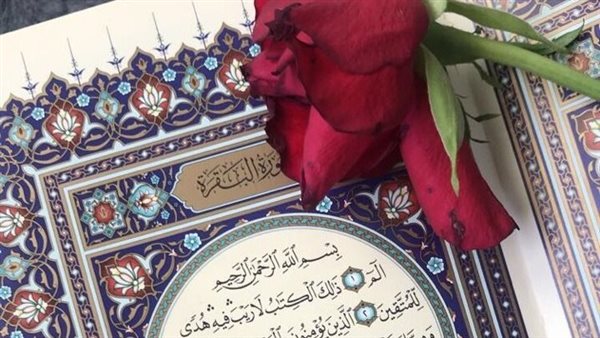 سورة البقرة
بِسْمِ ٱللَّهِ ٱلرَّحْمَٰنِ ٱلرَّحِيمِ
الٓمٓ ١ ذَٰلِكَ ٱلْكِتَٰبُ لَا رَيْبَ فِيهِ هُدًى
لِّلْمُتَّقِينَ ٢ ٱلَّذِينَ يُؤْمِنُونَ